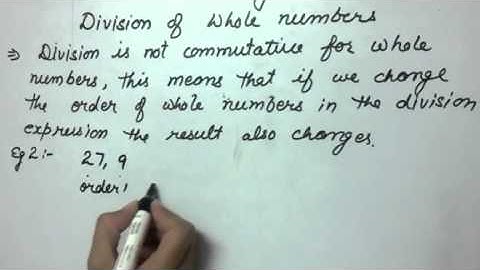 Division of Whole numbers
⇒ Division is not commutative for whole
numbers, this means that if we change
the order of whole numbers in the division
expression the result also changes.
Eg 2:- 27, 9
order 1